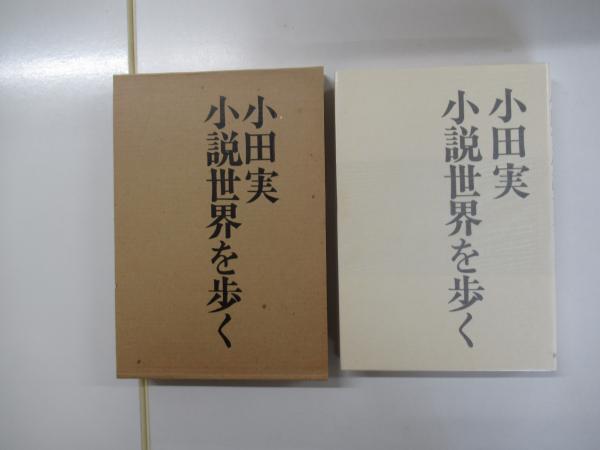 小田実
小説世界を歩く
小田実
小説世界を歩く